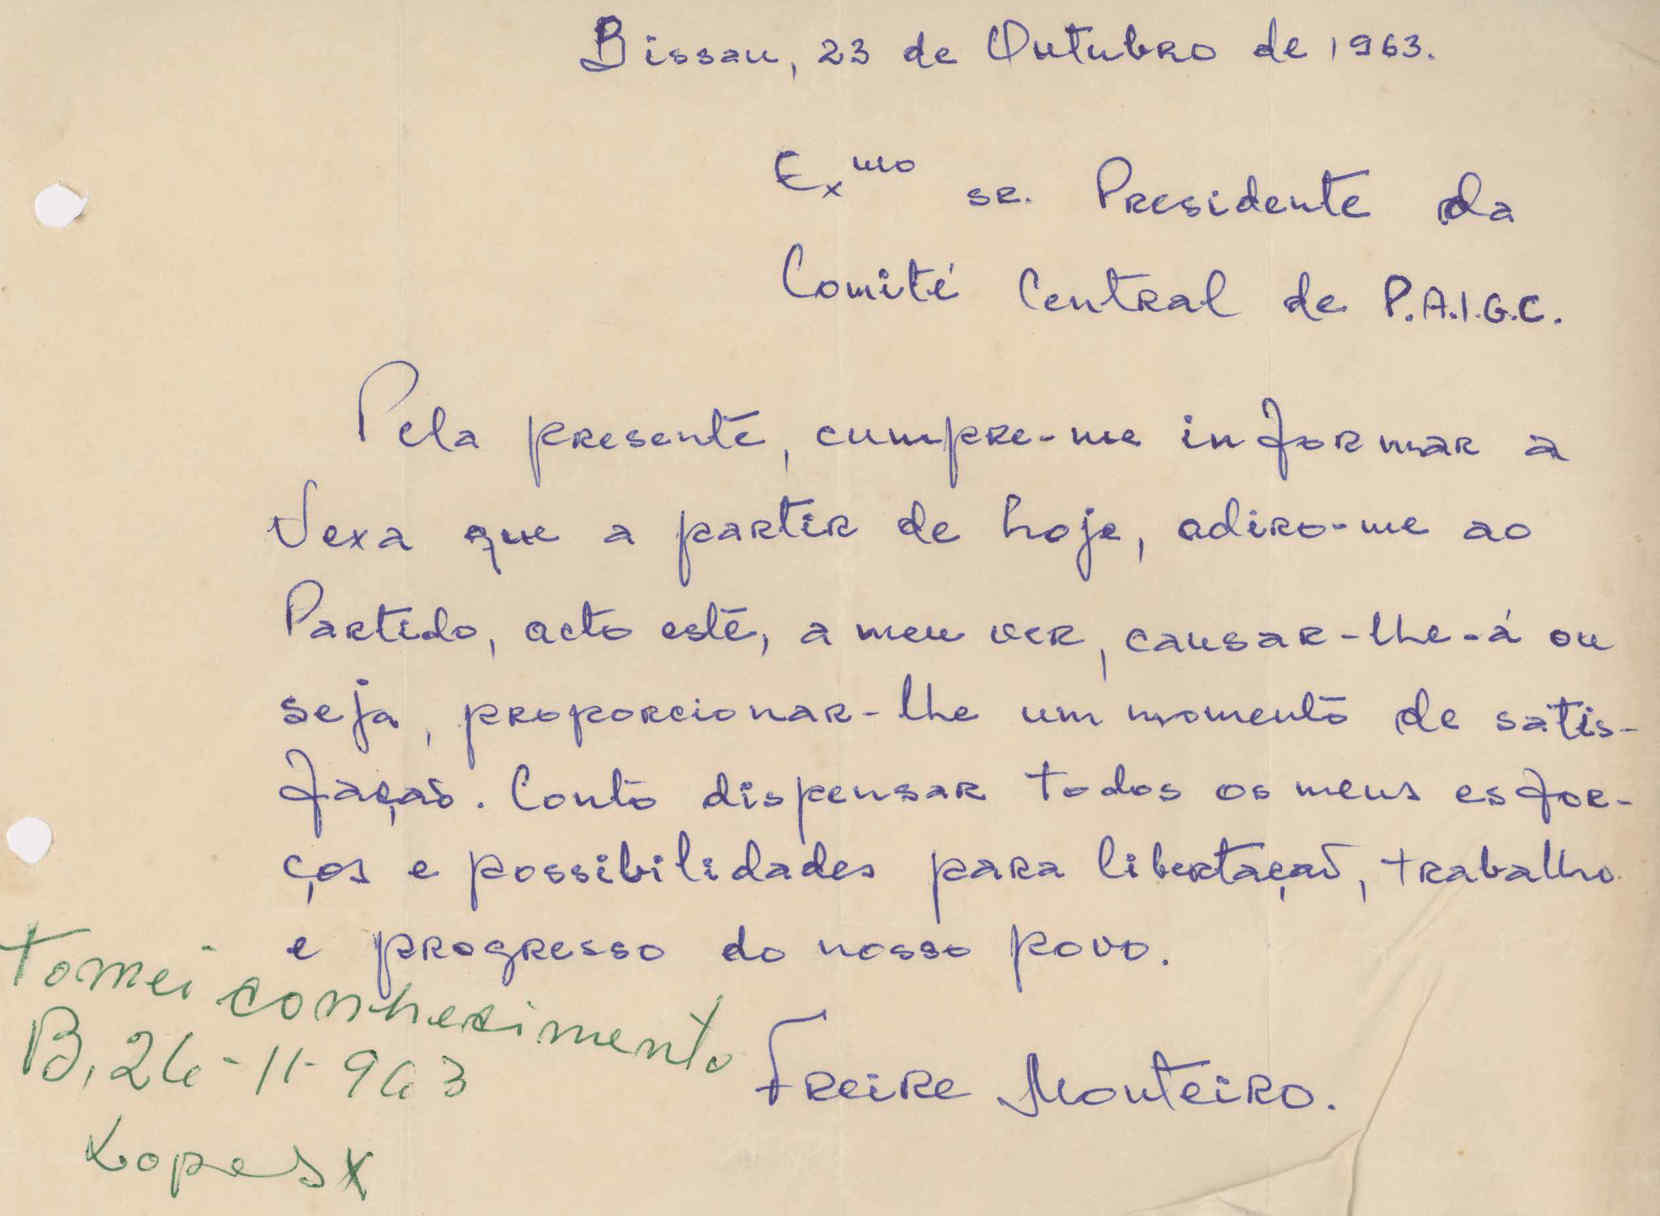 Bissau, 23 de Outubro de 1963.
Exmo sr. Presidente da
Comité Central de P.A.I.G.C.
Pela presente, cumpre-me informar a
Vexa que a partir de hoje, adiro-me ao
Partido, acto este, a meu ver, causar-lhe-á ou
seja, proporcionar-lhe um momento de satis-
fação. Conto dispensar todos os meus esfor-
ços e possibilidades para libertação, trabalho
e progresso do nosso povo.
Freire Monteiro.
Tomei conhecimento
B, 26-11-963
Lopes